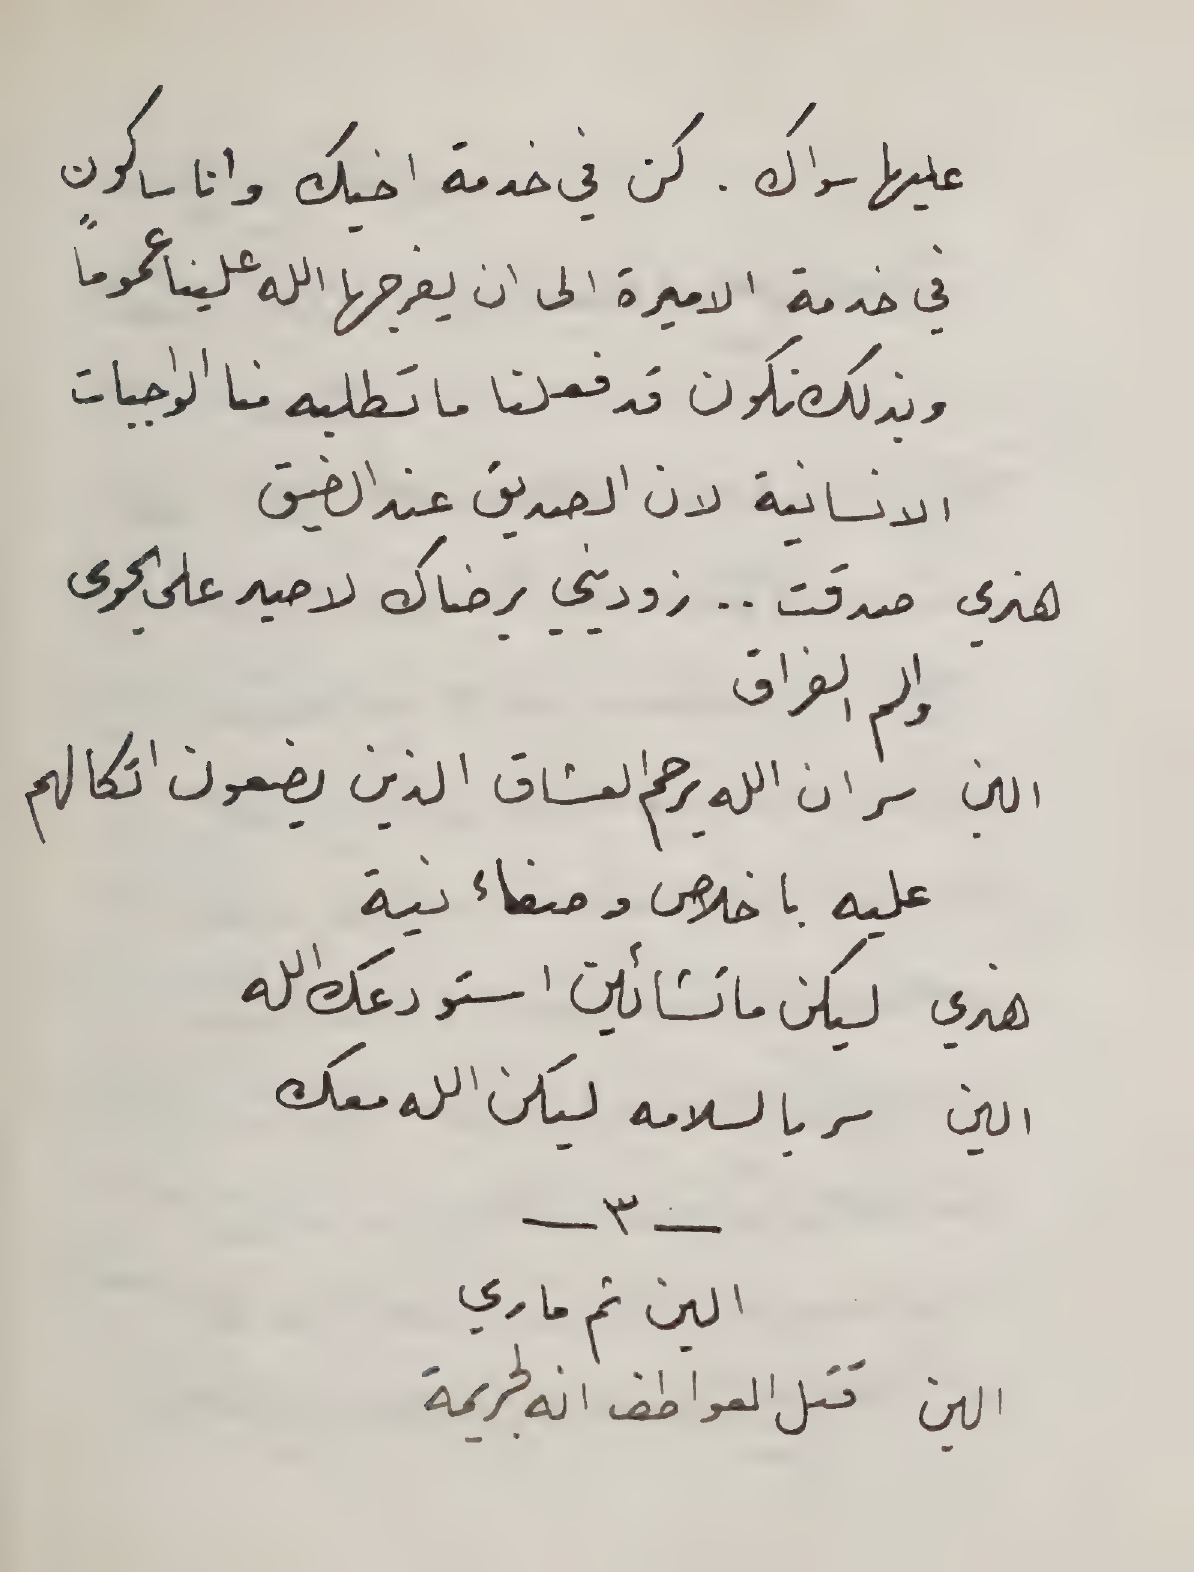 عليها سواك . كن في خدمة اخيك وانا ساكون
في خدمة الاميرة الى ان يفرجها الله علينا عموماً
وبذلك نكون قد فعلنا ما تطلبه منا الواجبات
الانسانية لان الصديق عند الضيق
هنري صدقت .. زوديني برضاك لاصبر على الجوى
والم الفراق
الين سر ان الله يرحم العشاق الذين يضعون اتكالهم
عليه باخلاص وصفاء نية
هنري ليكن ما تشائين استودعك الله
الين سر بالسلامه ليكن الله معك
— ٣ —
الين ثم ماري
الين قتل العواطف انه لجريمة